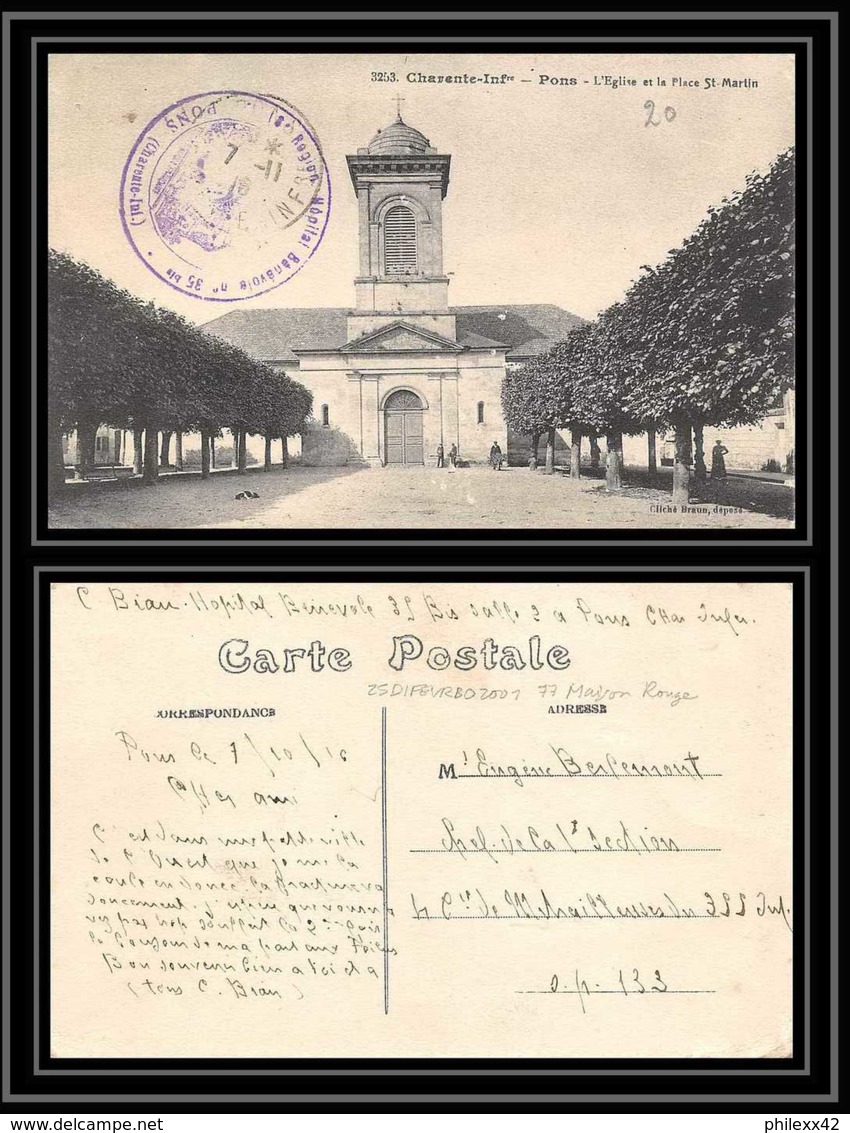 3253. Charente-Infre — Pons - L'Eglise et la Place St-Martin
20
PONS (Charente-Inf.) Région Hôpital Bénévole n° 35 bis
7 -11
16
E INFRE
Cliché Braun, déposé.
C Biau. Hopital Benevole 35 Bis salle 2 a Pons Char Infer.
Carte Postale
25DIFEVRBO2001 77 Maison Rouge
CORRESPONDANCE
ADRESSE
Pons le 7/10/16
Cher ami
C'est dans une petite ville
de l'Ouest que je me la
coule en douce. la fracture va
doucement. j'espère que vous n'a
vez pas trop souffert la 2me fois
le bonjour de ma part aux Poilus
Bon souvenir bien a toi et a
(tous C. Biau)
Mr Eugène Berlemont
chef. de la 1e section
4 Cie de Mitrailleuses du 355 Inf.
s.p. 133
philexx42